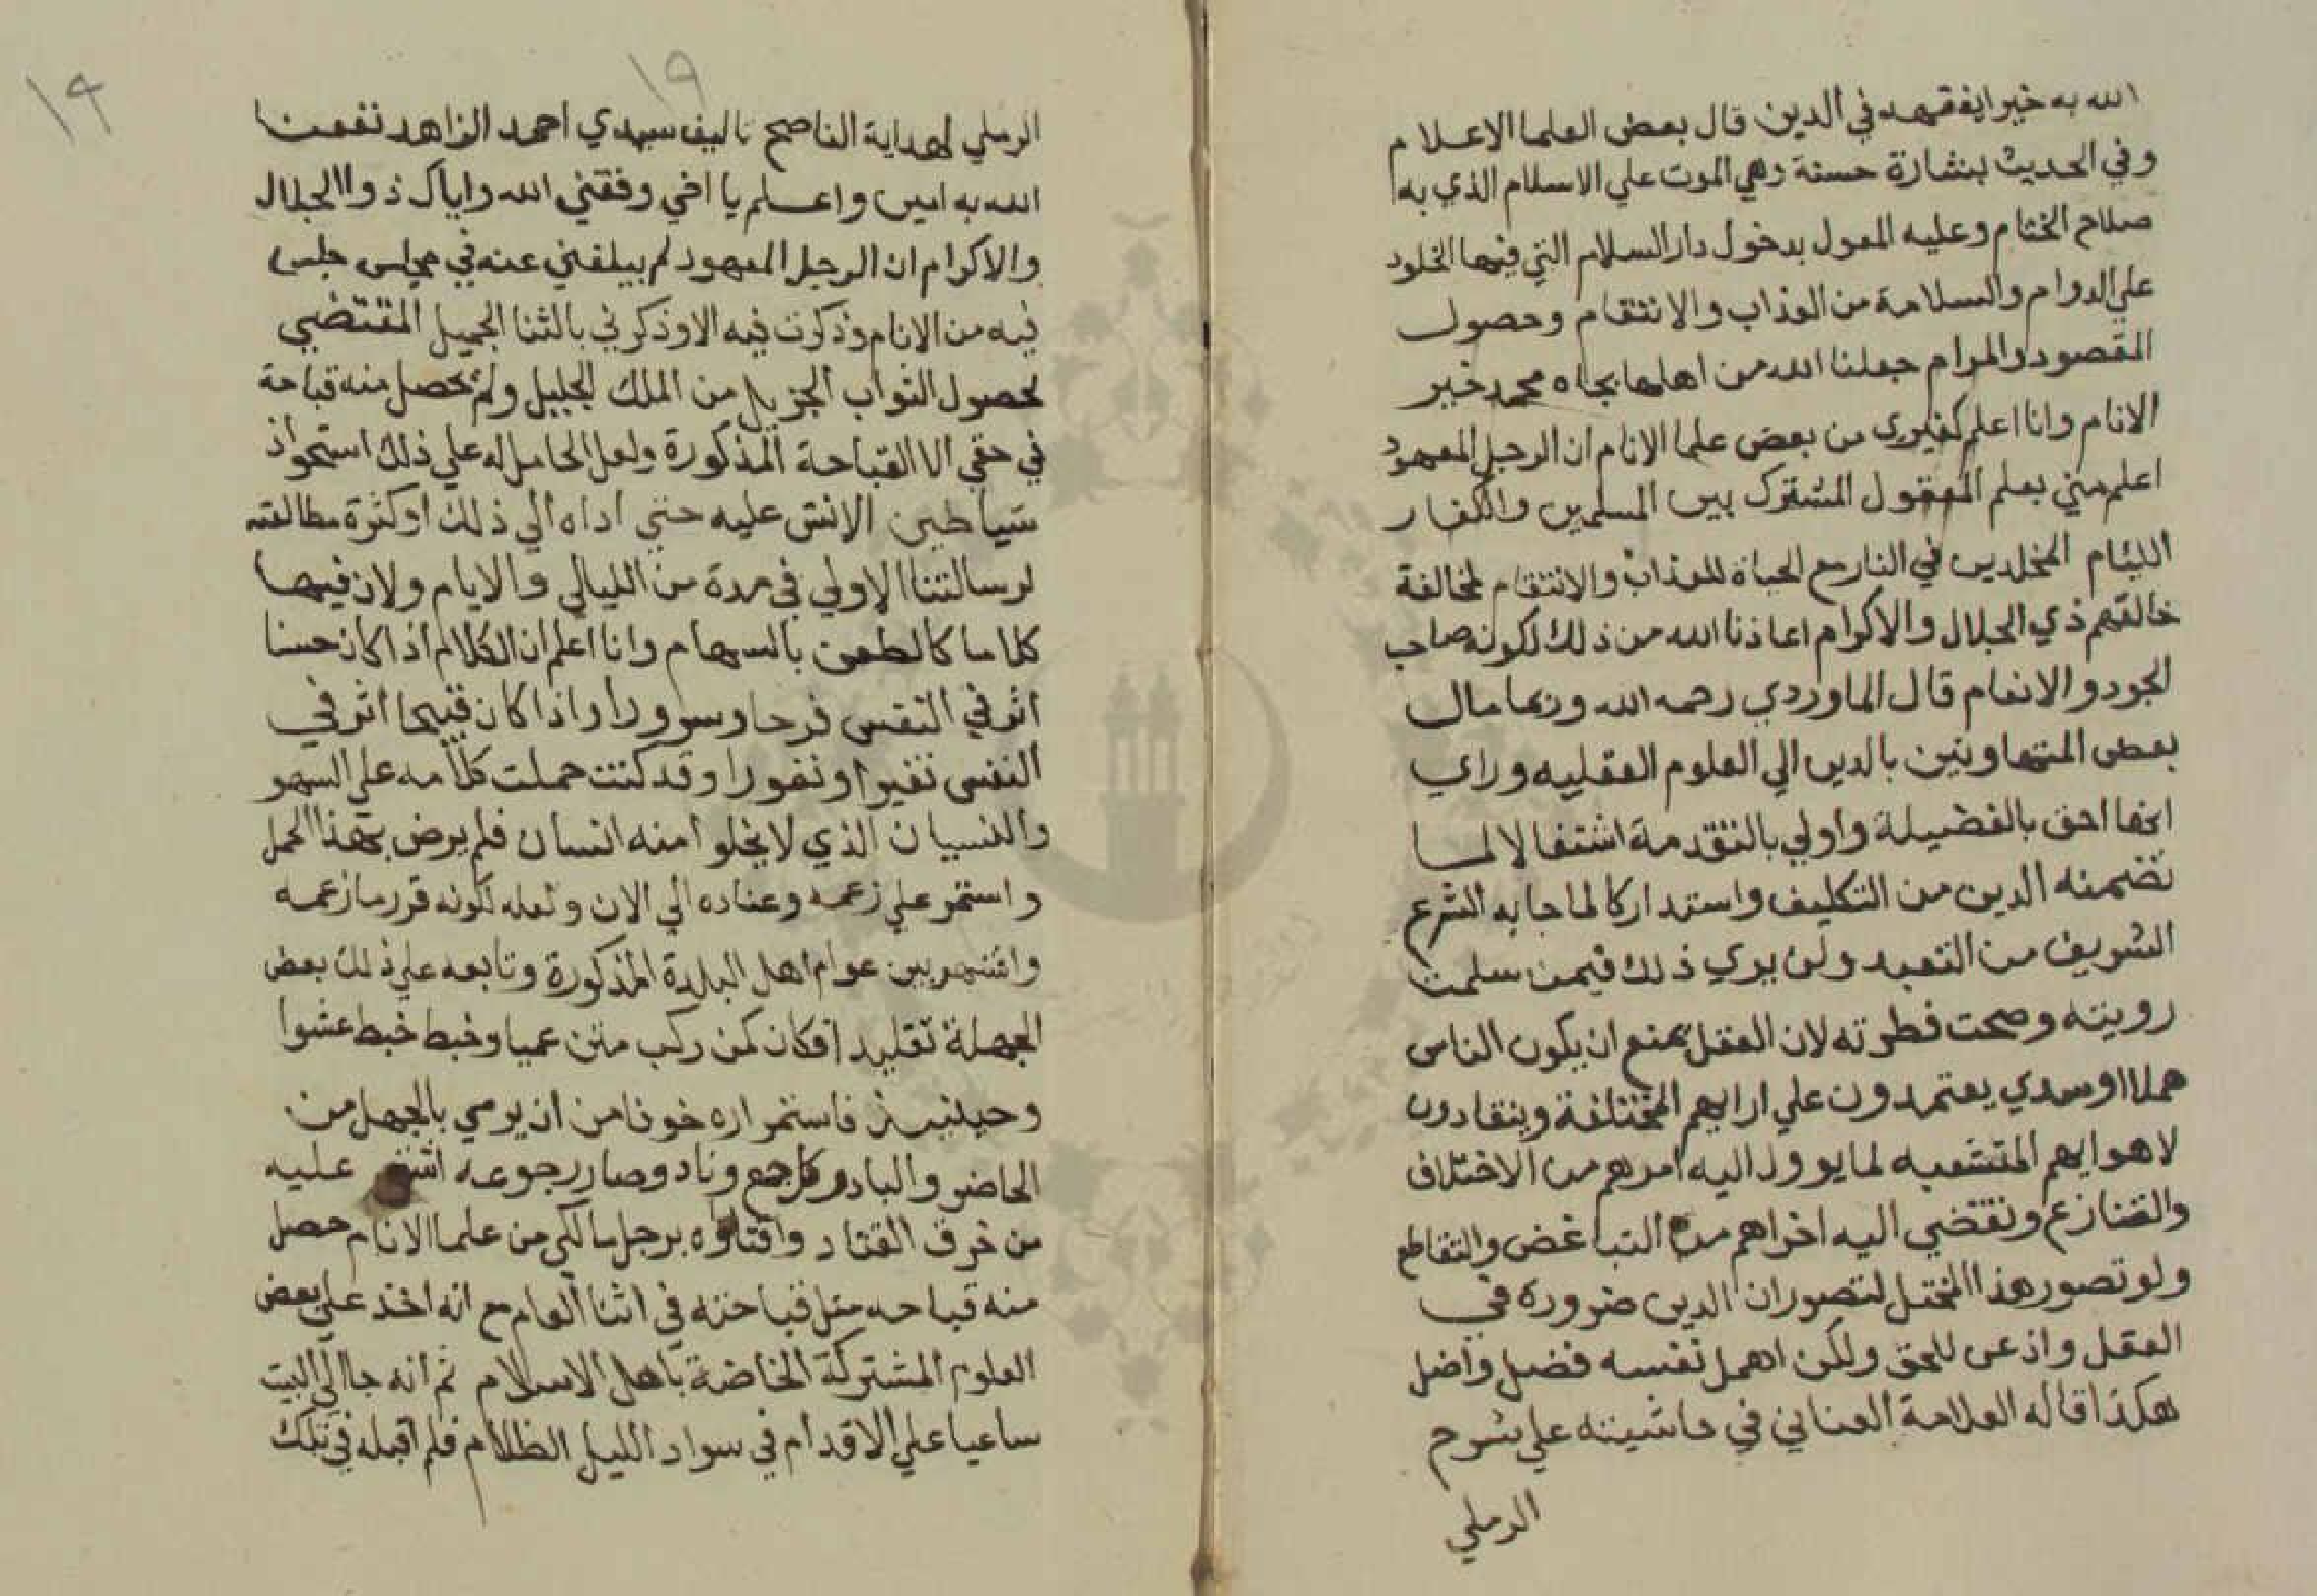 الله به خيرا يفقهه في الدين قال بعض العلما الاعلام
وفي الحديث بشارة حسنة وهي الموت علي الاسلام الذي به
صلاح الختام وعليه المعول بدخول دار السلام التي فيها الخلود
علي الدوام والسلامة من العذاب والانتقام وحصول
المقصود والمرام جعلنا الله من اهلها بجاه محمد خير
الانام وانا اعلم كغيري من بعض علما الانام ان الرجل المعهود
اعلم مني بعلم المعقول المشترك بين المسلمين والكفار
الليئام المخلدين في النار مع الحياة للعذاب والانتقام لمخالفة
خالقهم ذي الجلال والاكرام اعاذنا الله من ذلك لكونه صاحب
الجود والانعام قال الماوردي رحمه الله وربما مال
بعض المتهاونين بالدين الي العلوم العقليه وراي
انها احق بالفضيلة واولي بالتقدمة اشتغالا لما
تضمنه الدين من التكليف واستدراكا لما جا به الشرع
الشريف من التعبد ولن يري ذلك فيمن سلمت
رويته وصحت فطرته لان العقل يمنع ان يكون الناس
هملا اوسدي يعتمدون علي ارايهم المختلفة وينقادون
لاهوايهم المتشعبه لما يوول اليه امرهم من الاختلاف
والتنازع وتقتضي اليه اخراهم من التباغض والتقاطع
ولو تصور هذا المختل لتصور ان الدين ضرورة في
العقل واذعن للحق ولكن اهمل نفسه فضل واضل
هكذا قاله العلامة العناني في حاشيته علي شرح
الرملي
١٩
١٩
الرملي لهداية الناصح تاليف سيدي احمد الزاهد نفعنا
الله به امين واعلم يا اخي وفقني الله واياك ذوا الجلال
والاكرام ان الرجل المعهود لم يبلغني عنه في مجلس جلس
فيه من الانام وذكرت فيه الاوذكرني بالثنا الجميل المقتضي
لحصول الثواب الجزيل من الملك الجليل ولم تحصل منه قباحة
في حقي الا القباحة المذكورة ولعل الحامل له علي ذلك استحواذ
شياطين الانس عليه حتي اداه الي ذلك او كثرة مطالعته
لرسالتنا الاولي في مدة من الليالي والايام ولان فيها
كلاما كالطعن بالسهام وانا اعلم ان الكلام اذا كان حسنا
اثر في النفس فرحا وسرورا واذا كان قبيحا اثر في
النفس تغيرا ونفورا وقد كنت حملت كلامه علي السهو
والنسيان الذي لا يخلوا منه انسان فلم يرض بهذا الحمل
واستمر علي زعمه وعناده الي الان ولعله لكونه قرر ما زعمه
واشتهر بين عوام اهل البلدة المذكورة وتابعه علي ذلك بعض
الجهلة تقليدا فكان كمن ركب متن عميا وخبط خبط عشوا
وحينيذ فاستمراره خوفا من ان يرمي بالجهل من
الحاضر والباد وكل جمع وناد وصار رجوعه عليه
من خرق القتاد واقتداؤه برجل مالكي من علما الانام حصل
منه قباحه مثل قباحته في اثنا العام مع انه اخذ علي بعض
العلوم المشتركة الخاصة باهل الاسلام ثم انه جا الي البيت
ساعيا علي الاقدام في سواد الليل الظلام فلم اقبله في تلك